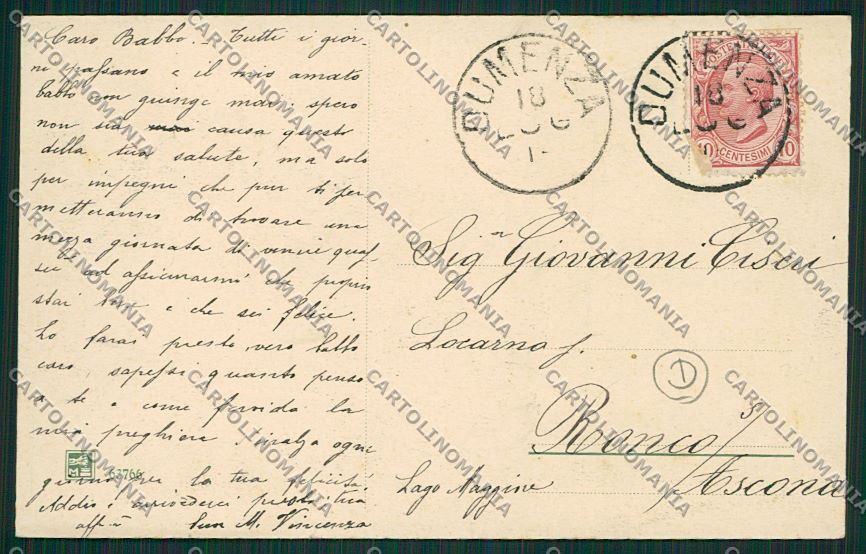 Caro Babbo. Tutti i gior-
ni passano e il mio amato
babbo non giunge mai, spero
non sia causa questo
della tua salute, ma solo
per impegni che pur ti per
metteranno di trovare una
mezza giornata di venire qui
ed assicurarmi che proprio
stai bene e che sei felice.
Lo farai presto, vero babbo
caro, sapessi quanto penso
a te e come fervida la
mia preghiera s'inalza ogni
giorno per la tua felicità.
Addio e arrivederci presto tua
aff.a Suor M. Vincenza
63766
DUMENZA
18
LUG
1-
DUMENZA
18
LUG
POSTE
CENTESIMI 10
Sig.n Giovanni Ciseri
Locarno f.
D
Ronco s/
Ascona
Lago Maggiore
CARTOLINOMANIA